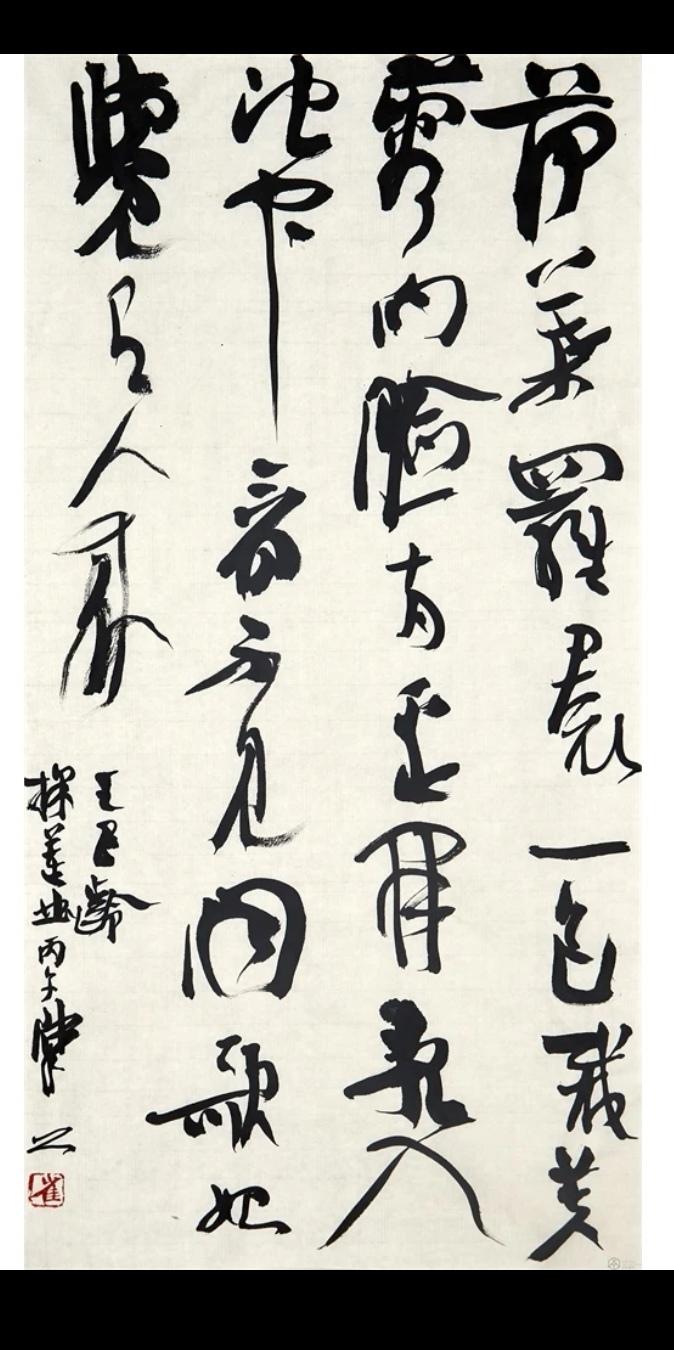 荷葉羅裙一色裁芙
蓉向臉两边開亂入
池中看不見闻歌始
覺有人來
王昌齡
採蓮曲丙午